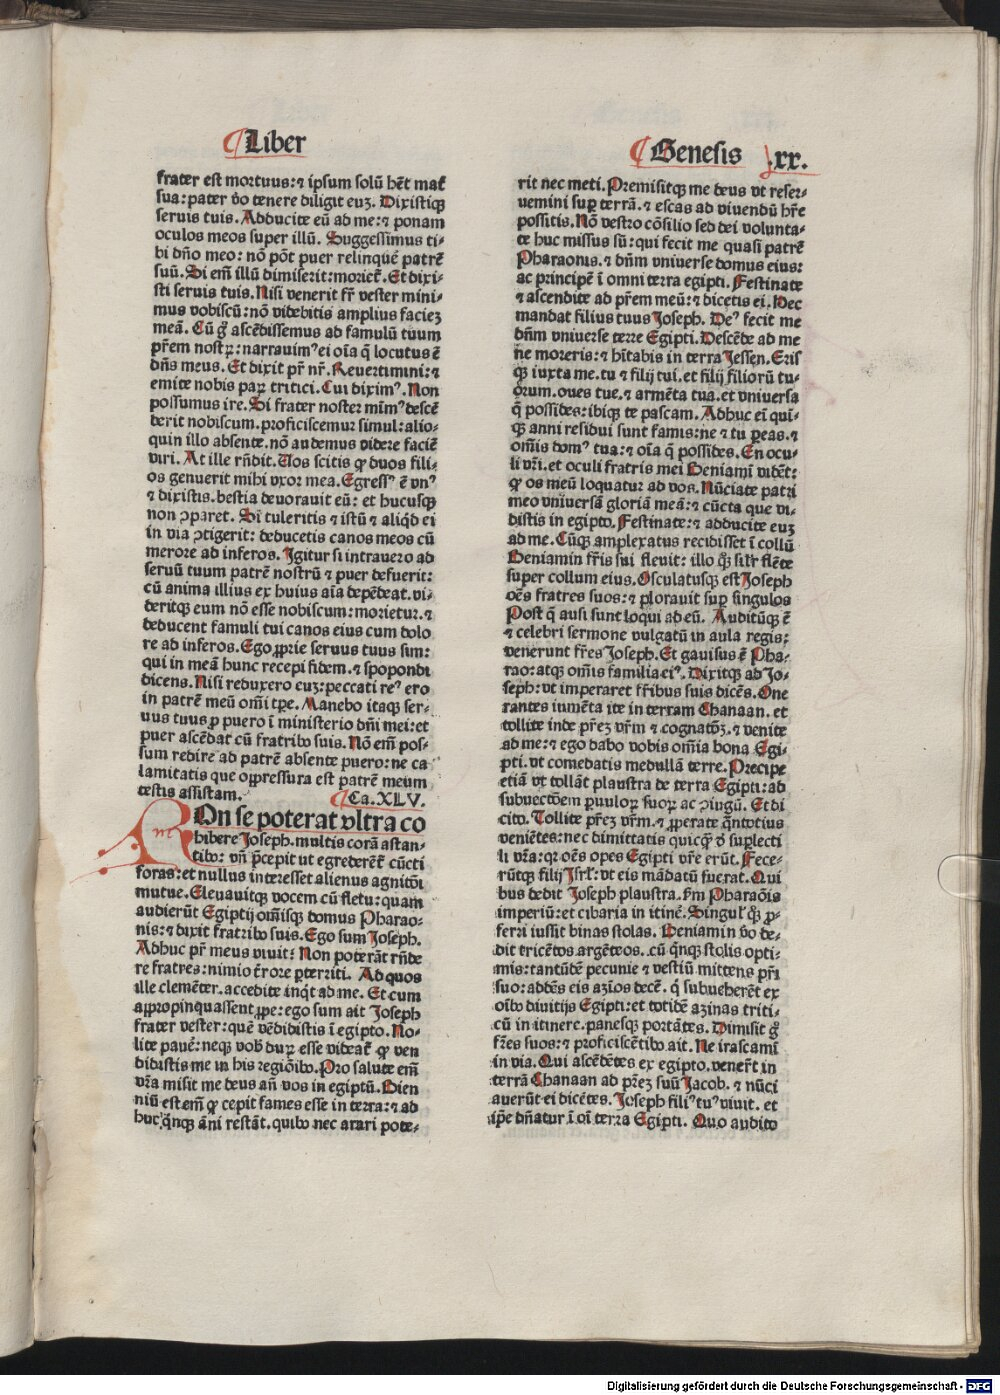 Liber
frater est mortuus: ⁊ ipsum solū hēt mať
sua: pater ṽo tenere diligit euꝫ. Dixistiqꝫ
seruis tuis. Adducite eū ad me: ⁊ ponam
oculos meos super illū. Suggessimus ti-
bi dño meo: nō pōt puer relinquē patrē
suū. Si em̄ illū dimiserit: moriet̄. Et dixi-
sti seruis tuis. Nisi venerit fr̄ vester mini-
mus vobiscū: nō videbitis amplius facieꝫ
meā. Cū g̊ ascēdissemus ad famulū tuum
pr̄em nostꝝ: narrauimꝰ ei oīa q̄ locutus ē
dn̄s meus. Et dixit pr̄ nr̄. Reuertimini: ⁊
emite nobis paꝝ tritici. Cui diximꝰ. Non
possumus ire. Si frater noster mīmꝰ descē
derit nobiscum. proficiscemur simul: alio-
quin illo absente. nō audemus videre faciē
viri. At ille rn̄dit. Uos scitis ꝙ duos fili-
os genuerit mihi vxor mea. Egressꝰ ē vnꝰ
⁊ dixistis. bestia deuorauit eū: et hucusqꝫ
non ꝯparet. Si tuleritis ⁊ istū ⁊ aliqd ei
in via ꝯtigerit: deducetis canos meos cū
merore ad inferos. Igitur si intrauero ad
seruū tuum patrē nostrū ⁊ puer defuerit:
cū anima illius ex huius aīa depēdeat. vi-
deritqꝫ eum nō esse nobiscum: morietur. ⁊
deducent famuli tui canos eius cum dolo
re ad inferos. Ego ꝓprie seruus tuus sim:
qui in meā hunc recepi fidem. ⁊ spopondi
dicens. Nisi reduxero euꝫ: peccati reꝰ ero
in patrē meū om̄i tꝑe. Manebo itaqꝫ ser-
uus tuus ꝓ puero ī ministerio dn̄i mei: et
puer ascēdat cū fratribꝰ suis. Nō em̄ pos-
sum redire ad patrē absente puero: ne ca
lamitatis que oppressura est patrē meum
testis assistam. Ca. XLV.
NOn se poterat vltra co
hibere Joseph. multis corā astan-
tibꝰ: vn̄ p̄cepit ut egrederēt cūcti
foras: et nullus interesset alienus agnitōi
mutue. Eleuauitqꝫ vocem cū fletu: quam
audierūt Egiptij om̄isqꝫ domus Pharao-
nis: ⁊ dixit fratribꝰ suis. Ego sum Joseph.
Adhuc pr̄ meus viuit: Non poterāt rn̄de
re fratres: nimio t̄rore pterriti. Ad quos
ille clemēter. accedite inq̄t ad me. Et cum
appropinquassent ꝓpe: ego sum ait Joseph
frater vester: quē vēdidistis ī egipto. No-
lite pauē: neqꝫ vob̄ duꝝ esse videat̄ ꝙ ven
didistis me in his regiōibꝰ. Pro salute em̄
vr̄a misit me deus an̄ vos in egiptū. Bien
niū est em̄ ꝙ cepit fames esse in terra: ⁊ ad
huc q̄nqꝫ āni restāt. quibꝰ nec arari pote-
Genesis .xx.
rit nec meti. Premisitqꝫ me deus vt reser-
uemini suꝑ terrā. ⁊ escas ad viuendū hr̄e
possitis. Nō vestro cōsilio sed dei volunta-
te huc missus sū: qui fecit me quasi patrē
Pharaonis. ⁊ dn̄m vniuerse domus eius:
ac principē ī omni terra egipti. Festinate
⁊ ascendite ad pr̄em meū: ⁊ dicetis ei. Hec
mandat filius tuus Joseph. Deꝰ fecit me
dn̄m vniuerse terre Egipti. Descēde ad me
ne moreris: ⁊ hītabis in terra Jessen. Eris
qꝫ iuxta me. tu ⁊ filij tui. et filij filiorū tu-
orum. oues tue. ⁊ armēta tua. et vniuersa
q̄ possides: ibiqꝫ te pascam. Adhuc ei qui-
qꝫ anni residui sunt famis: ne ⁊ tu ꝑeas. ⁊
om̄is domꝰ tua: ⁊ oīa q̄ possides. En ocu-
li vr̄i. et oculi fratris mei Beniamī vidēt:
ꝙ os meū loquatur ad vos. Nūciate patri
meo vniuersā gloriā meā: ⁊ cūcta que vi-
distis in egipto. Festinate: ⁊ adducite euꝫ
ad me. Cūqꝫ amplexatus recidisset ī collū
Beniamin fr̄is sui fleuit: illo qꝫ̄ sil̄r flēte
super collum eius. Osculatusqꝫ est Joseph
oēs fratres suos: ⁊ plorauit suꝑ singulos
Post q̄ ausi sunt loqui ad eū. Auditūqꝫ ē
⁊ celebri sermone vulgatū in aula regis:
venerunt fr̄es Joseph. Et gauisus ē Pha-
rao: atqꝫ om̄is familia eiꝰ. Dixitqꝫ ad Jo-
seph: vt imperaret fr̄ibus suis dicēs. One
rantes iumēta ite in terram Chanaan. et
tollite inde pr̄eꝫ vr̄m ⁊ cognatōꝫ. ⁊ venite
ad me: ⁊ ego dabo vobis om̄ia bona Egi-
pti. vt comedatis medullā terre. Precipe
etiā vt tollāt plaustra de terra Egipti: ad
subuectōem ꝑuuloꝝ suoꝝ ac ꝯiugū. Et di
cito. Tollite pr̄eꝫ vr̄m. ⁊ ꝓperate q̄ntotius
veniētes: nec dimittatis quicqꝫ̄ ð supplecti
li vr̄a: qꝛ oēs opes Egipti vr̄e erūt. Fece-
rūtqꝫ filij Isrl̄: vt eis mādatū fuerat. Qui
bus dedit Joseph plaustra. ẜm Pharaōis
imperiū: et cibaria in itinē. Singul̄ qꝫ̄ ꝓ-
ferri iussit binas stolas. Beniamin ṽo de-
dit tricētos argēteos. cū q̄nqꝫ stolis opti-
mis: tantūdē pecunie ⁊ vestiū mittens pr̄i
suo: addēs eis aꝫios decē. q̄ subueherēt ex
oībꝰ diuitijs Egipti: et totidē aꝫinas triti-
cū in itinere. panesqꝫ portātes. Dimisit g̊
fr̄es suos: ⁊ proficiscētibꝰ ait. Ne irascamī
in via. Qui ascēdētes ex egipto. venerūt in
terrā Chanaan ad pr̄eꝫ suū Jacob. ⁊ nūci
auerūt ei dicētes. Joseph filiꝰ tuꝰ viuit. et
ip̄e dn̄atur ī oī terra Egipti. Quo audito
Digitalisierung gefördert durch die Deutsche Forschungsgemeinschaft - DFG